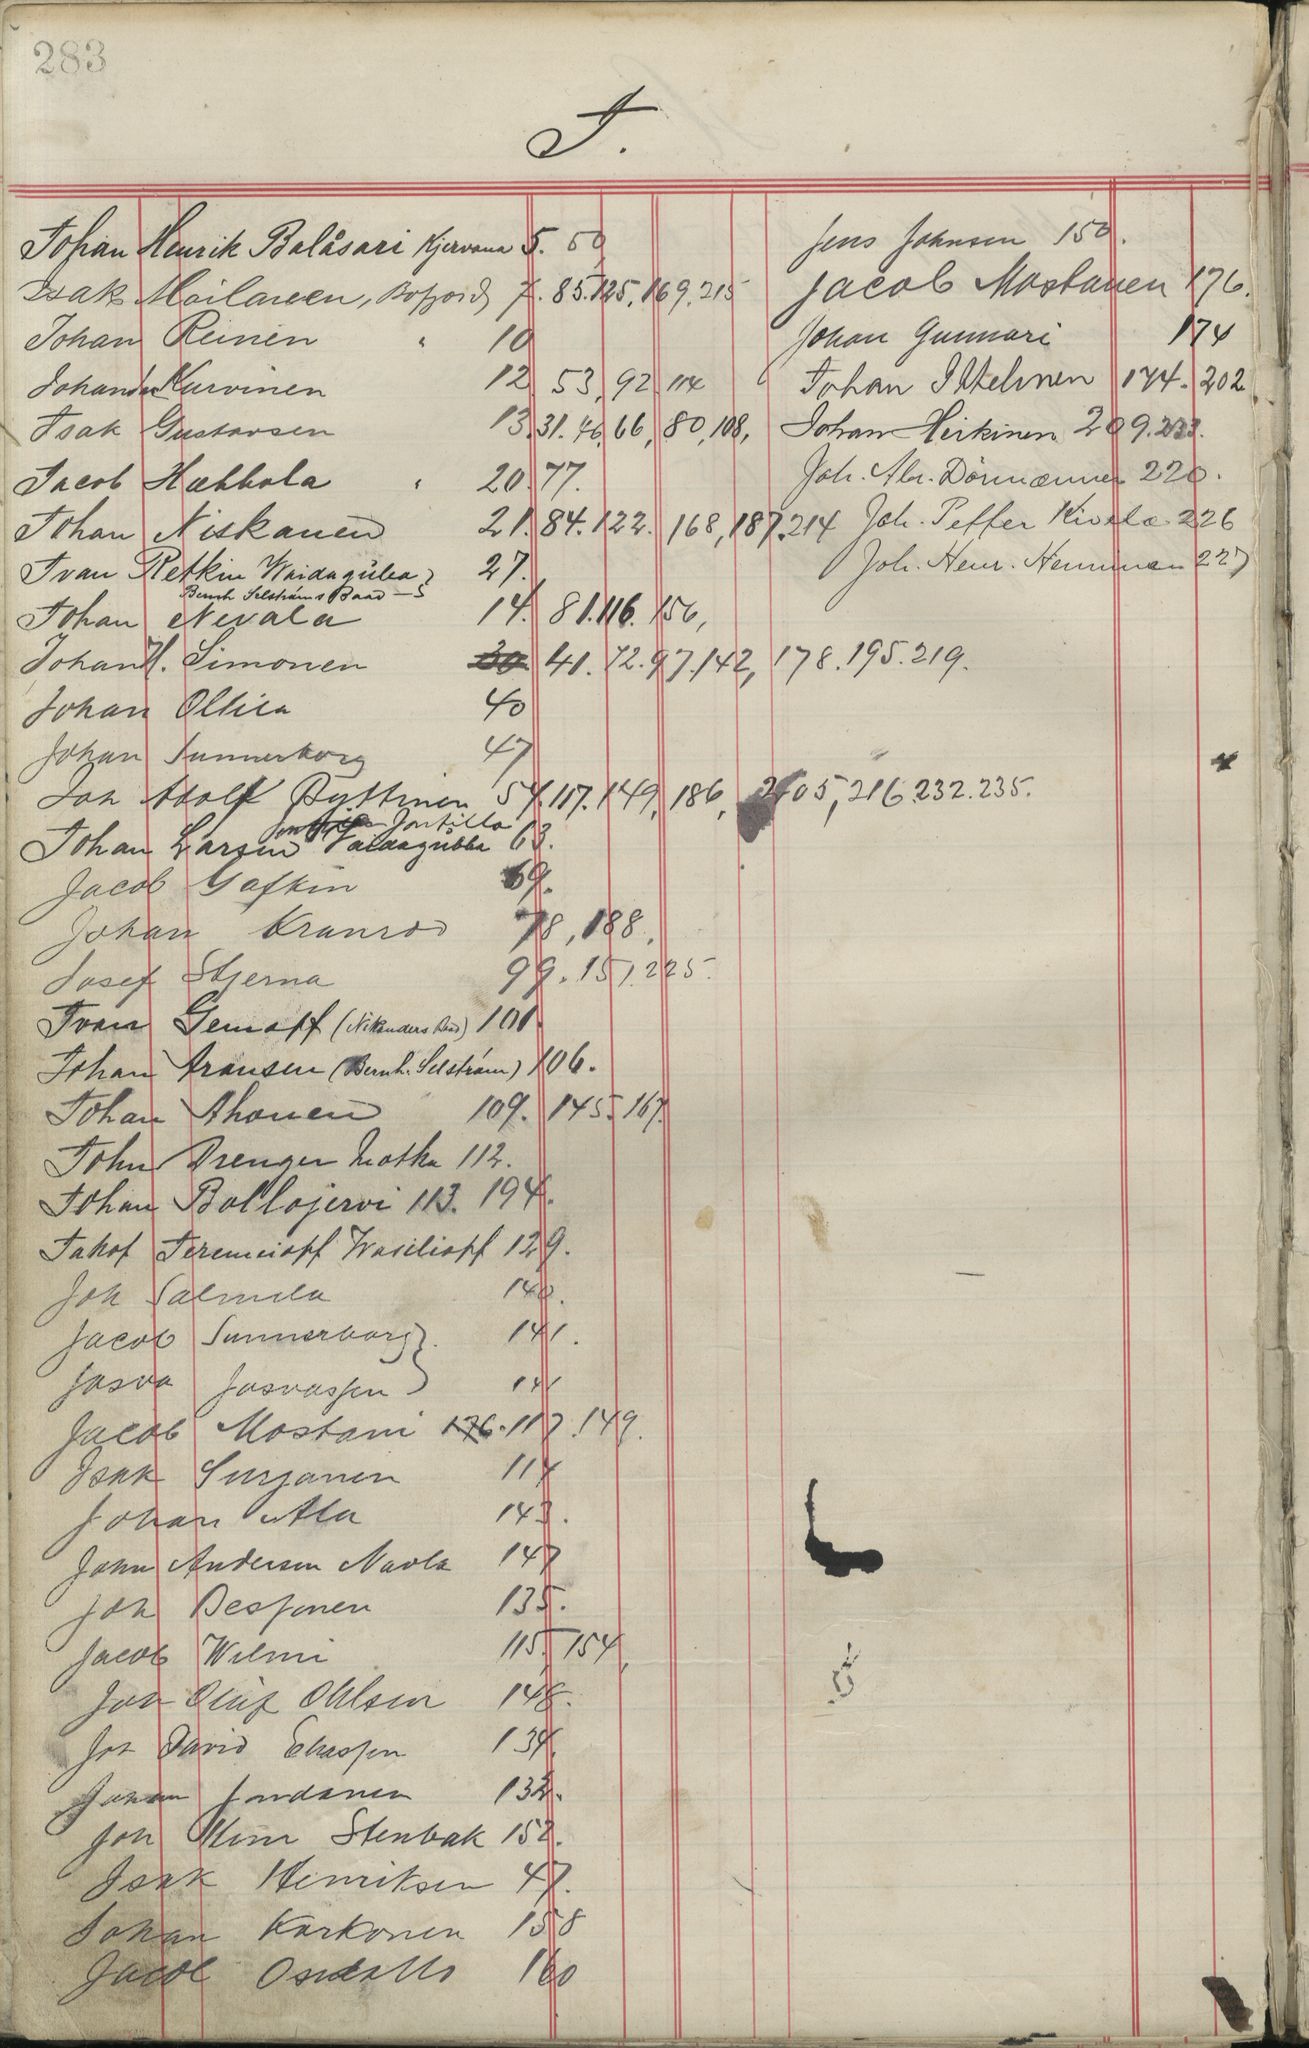 283
J.
Johan Henrik Balåsari Kjervana 5. 50,
Isak Moilaneen, Bofjord, 7. 85. 125. 169. 215
Johan Reinen " 10
Johan Kurvinen 12. 53, 92. 114
Isak Gustavsen 13. 31. 46. 66, 80, 108,
Jacob Hukkola " 20. 77.
Johan Niskanen 21. 84. 122. 168, 187. 214
Ivan Retkin Waidaguba 27.
Bernh Selströms Baad
Johan Nevala 14. 81. 116. 156,
Johan H. Simonen 30 41. 72. 97. 142, 178. 195. 219.
Johan Ollila 40
Johan Sunnerborg 47
Joh Adolf Pyttinen 54. 117. 149, 186, 205, 216. 232. 235.
Jontilla
Johan Larsen Vaidaguba 63.
Jacob Gafkin 69.
Johan Kranrod 78, 188,
Josef Stjerna 99. 151. 225.
Ivan Genoff (Nikanders Baad) 101.
Johan Aronsen (Bernh. Selström) 106.
Johan Ahonen 109. 145. 167.
John Drenger Motka 112.
Johan Bollojervi 113. 194.
Jakof Jeremeioff Wasilioff 129.
Joh Salmela 140.
Jacob Sunnerborg 141.
Josva Josvassen 141
Jacob Mostani 176. 117. 149.
Isak Surjanen 114
Johan Ala 143.
John Andersen Navola 147
Joh Pessonen 135.
Jacob Wilmi 115, 154,
Joh Oluf Ohlsen 148.
Joh David Eliassen 134.
Johan Jondanen 132.
Joh Wilm Stenbak 152.
Isak Henriksen 47.
Johan Korkonen 158
Jacob 160
Jens Johnsen 150.
Jacob Mostanen 176.
Johan Gunnari 174
Johan Ikkelmen 174. 202
Johan Heikinen 209. 233.
Joh. Abr. Dörmænnen 220.
Joh. Petter Kivela 226
Joh. Henr. Henninen 227